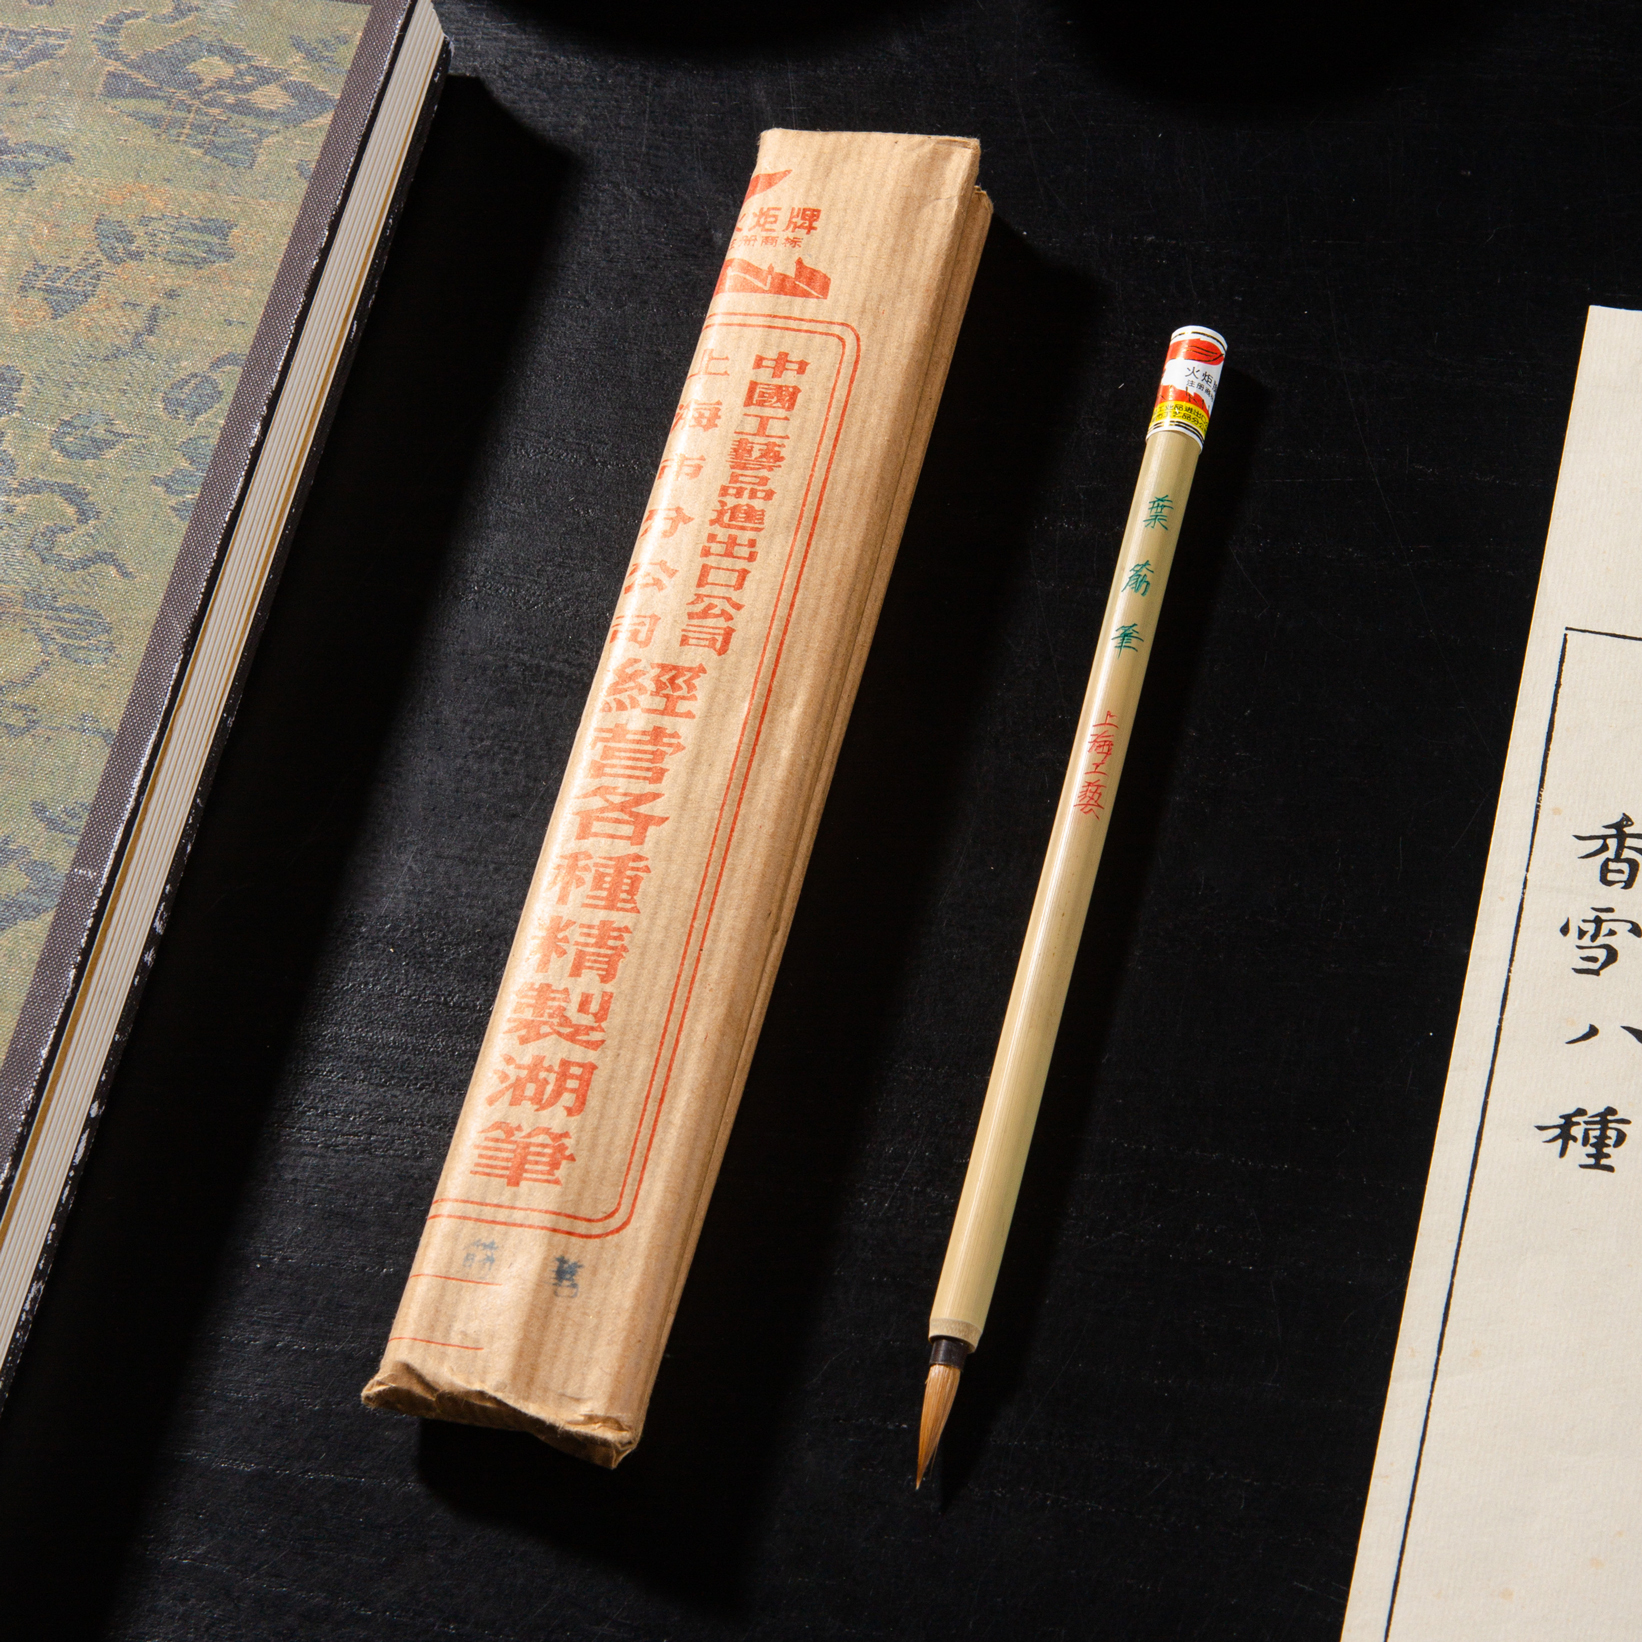 炬牌
册商标
中國工藝品進出口公司
上海市分公司
經营各種精製湖筆
火炬
注册商
葉筋筆
上海工藝
香雪八種